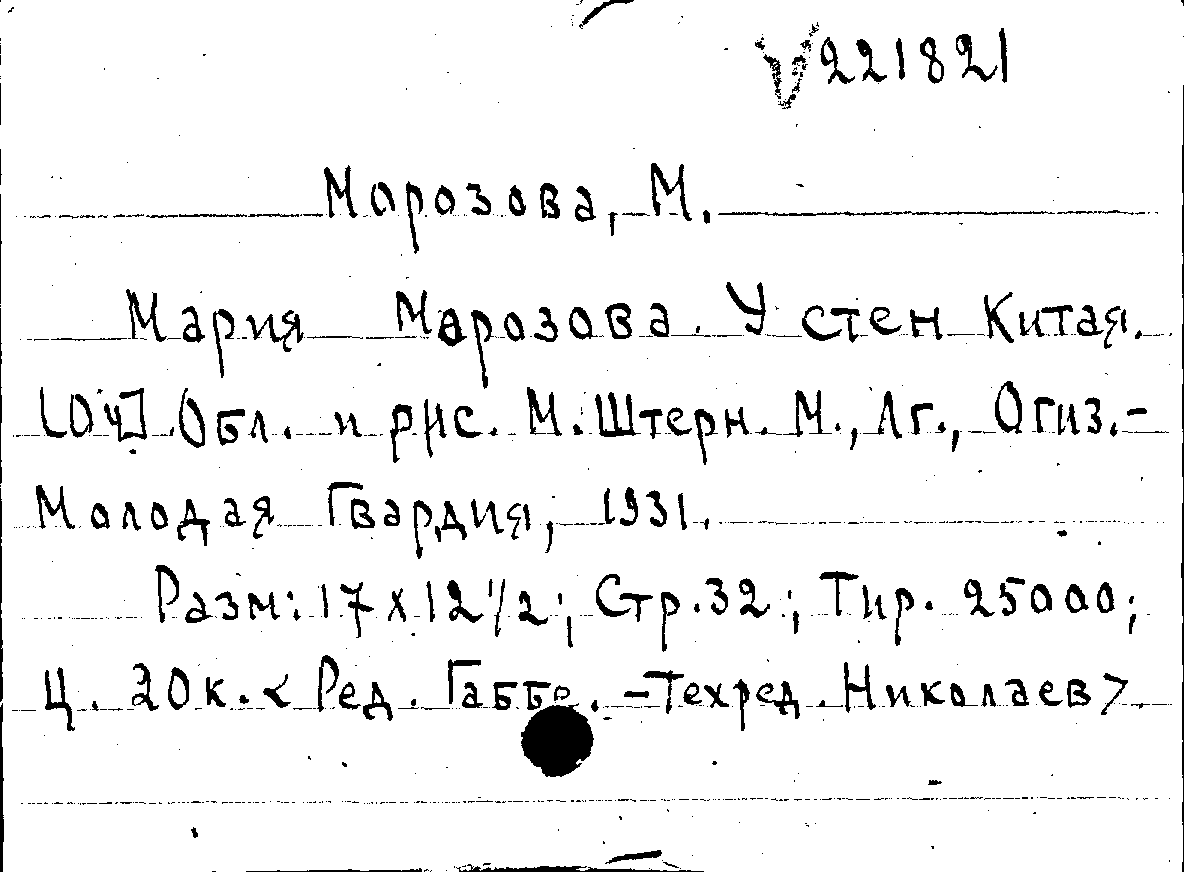 V221821
Морозова, М.
Мария Морозова. У стен Китая.
[Оч]. Обл. и рис. М. Штерн. М., Лг., Огиз.-
Молодая Гвардия, 1931.
Разм: 17 х 12 1/2; Стр. 32; Тир. 25000;
Ц. 20 к. < Ред. Габбе. - Техред. Николаев >.